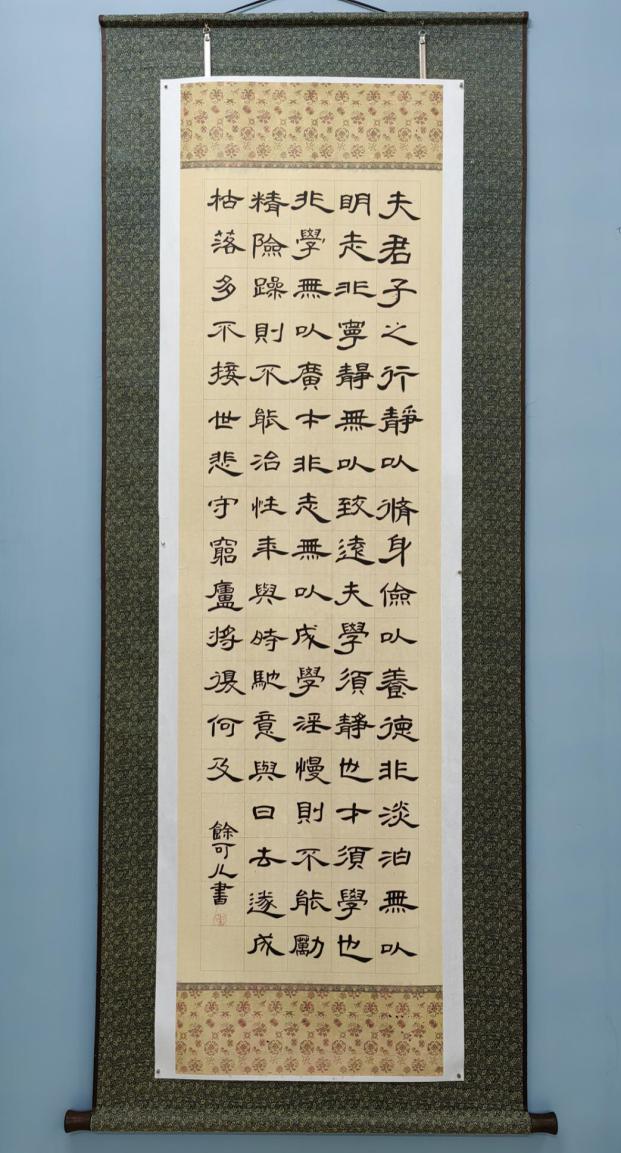 夫君子之行靜以脩身儉以養德非淡泊無以
明志非寧靜無以致遠夫學須靜也才須學也
非學無以廣才非志無以成學淫慢則不能勵
精險躁則不能治性年與時馳意與日去遂成
枯落多不接世悲守窮廬將復何及
餘可儿書